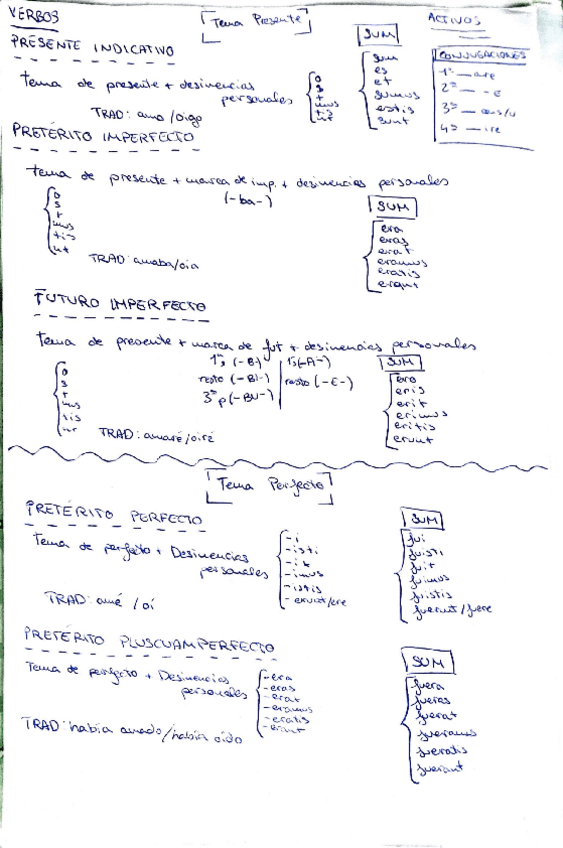 VERBOS
[Tema Presente]
ACTIVOS
PRESENTE INDICATIVO
tema de presente + desinencias
personales
o
s
t
mus
tis
nt
TRAD: amo /oigo
SUM
sum
es
et
sumus
estis
sunt
CONJUGACIONES
1ª — are
2ª — -e
4ª — ire
PRETÉRITO IMPERFECTO
tema de presente + marca de imp. + desinencias personales
(-ba-)
o
s
t
mus
tis
nt
TRAD: amaba/oía
SUM
era
eras
erat
eramus
eratis
erant
FUTURO IMPERFECTO
tema de presente + marca de fut + desinencias personales
1ªs (-B-) | 1ªs (-A-)
resto (-BI-) | resto (-E-)
3ª p (-BU-)
o
s
t
mus
tis
nt
TRAD: amaré/oiré
SUM
ero
eris
erit
erimus
eritis
erunt
[Tema Perfecto]
PRETÉRITO PERFECTO
Tema de perfecto + Desinencias
personales
-i
-isti
-it
-imus
-istis
-erunt/ere
TRAD: amé /oí
SUM
fui
fuisti
fuit
fuimos
fuistis
fuerunt/fuere
PRETÉRITO PLUSCUAMPERFECTO
Tema de perfecto + Desinencias
personales
-era
-eras
-erat
-eramus
-eratis
-erant
TRAD: había amado/había oído
SUM
fuera
fueras
fuerat
fueramus
fueratis
fuerant